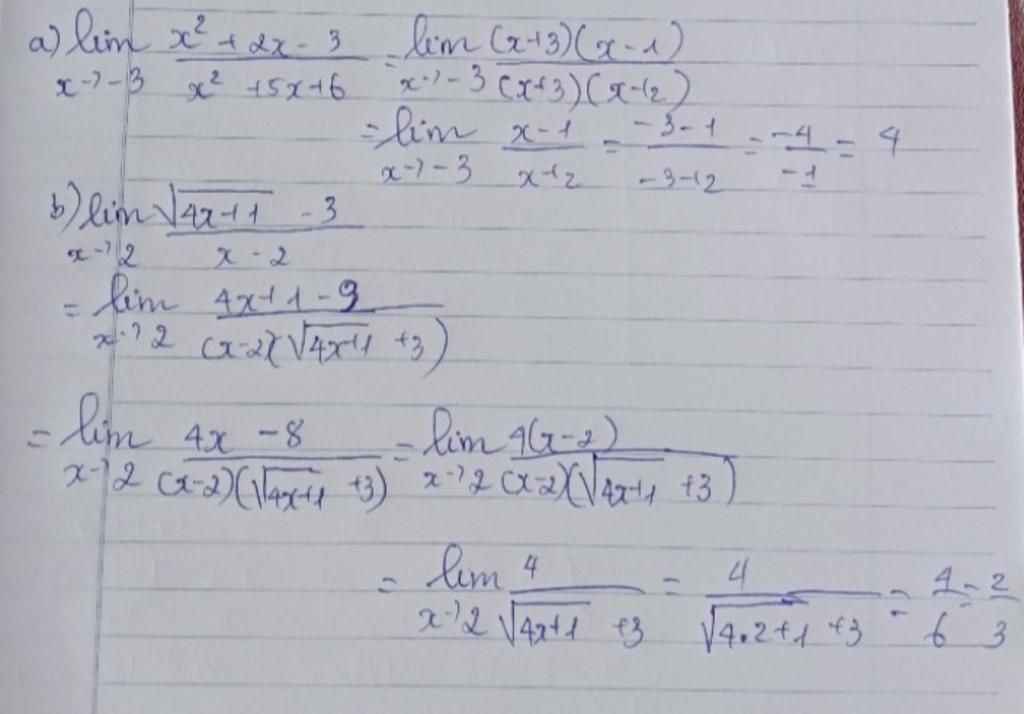 a) lim x→-3 (x² + 2x - 3)/(x² + 5x + 6) = lim x→-3 ((x+3)(x-1))/((x+3)(x+2))
= lim x→-3 (x-1)/(x+2) = (-3-1)/(-3+2) = (-4)/(-1) = 4
b) lim x→2 (√(4x+1) - 3)/(x-2)
= lim x→2 (4x+1-9)/((x-2)(√(4x+1) +3))
= lim x→2 (4x-8)/((x-2)(√(4x+1) +3)) = lim x→2 (4(x-2))/((x-2)(√(4x+1) +3))
= lim x→2 4/(√(4x+1) +3) = 4/(√(4.2+1) +3) = 4/6 = 2/3